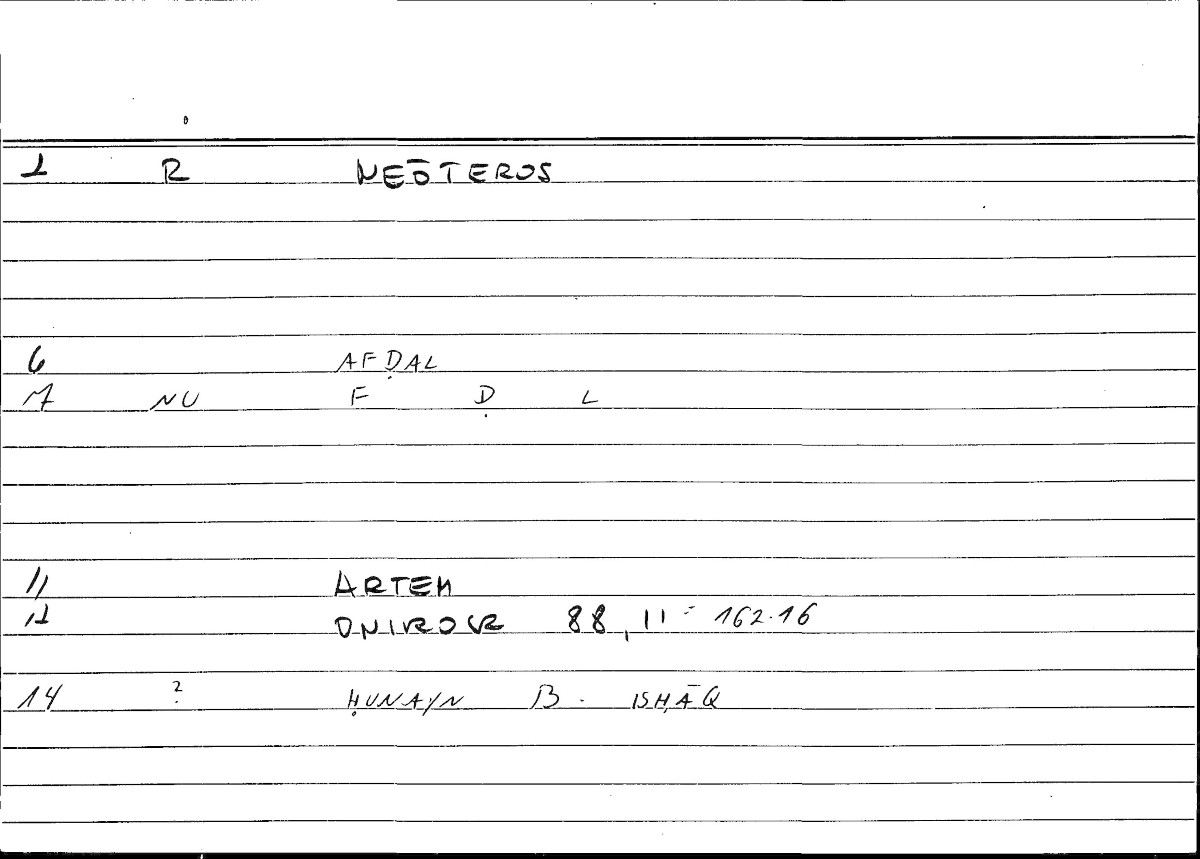 1 R NEŌTEROS
6 AFḌAL
7 NU F Ḍ L
11 ARTEM
12 ONIROCR 88,11 = 162.16
14 ? ḤUNAYN B. ISḤĀQ